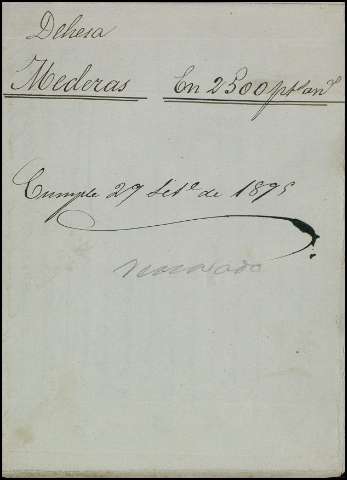 Dehesa
Mederas En 2500 pts an.s
Cumple 29 Set.e de 1895
renovado